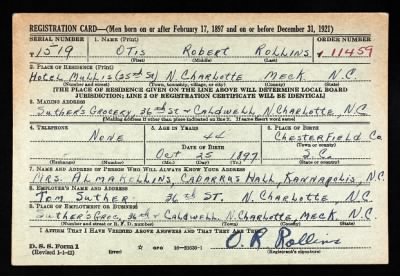 REGISTRATION CARD—(Men born on or after February 17, 1897 and on or before December 31, 1921)
SERIAL NUMBER 1. NAME (Print) ORDER NUMBER
T 1519 OTIS ROBERT ROLLINS T 11459
(First) (Middle) (Last)
2. PLACE OF RESIDENCE (Print)
HOTEL MULLIS (25th St) N. CHARLOTTE MECK N.C.
(Number and street) (Town, township, village, or city) (County) (State)
[THE PLACE OF RESIDENCE GIVEN ON THE LINE ABOVE WILL DETERMINE LOCAL BOARD
JURISDICTION; LINE 2 OF REGISTRATION CERTIFICATE WILL BE IDENTICAL]
3. MAILING ADDRESS
SUTHER'S GROCERY, 36th St & CALDWELL, N. CHARLOTTE, N.C.
[Mailing address if other than place indicated on line 2. If same insert word same]
4. TELEPHONE 5. AGE IN YEARS 6. PLACE OF BIRTH
NONE 44 CHESTERFIELD CO.
DATE OF BIRTH (Town or county)
OCT 25 1897 S.C.
(Exchange) (Number) (Mo.) (Day) (Yr.) (State or country)
7. NAME AND ADDRESS OF PERSON WHO WILL ALWAYS KNOW YOUR ADDRESS
MRS. ALMA KELLINS, CABARRUS HALL, KANNAPOLIS, N.C.
8. EMPLOYER'S NAME AND ADDRESS
TOM SUTHER 36th ST. N. CHARLOTTE, N.C.
9. PLACE OF EMPLOYMENT OR BUSINESS
SUTHER'S GROC, 36th & CALDWELL, N. CHARLOTTE, MECK, N.C.
(Number and street or R. F. D. number) (Town) (County) (State)
I AFFIRM THAT I HAVE VERIFIED ABOVE ANSWERS AND THAT THEY ARE TRUE.
D. S. S. Form 1
(Revised 1-1-42) (over) 16-21630-1 O. R. Rollins